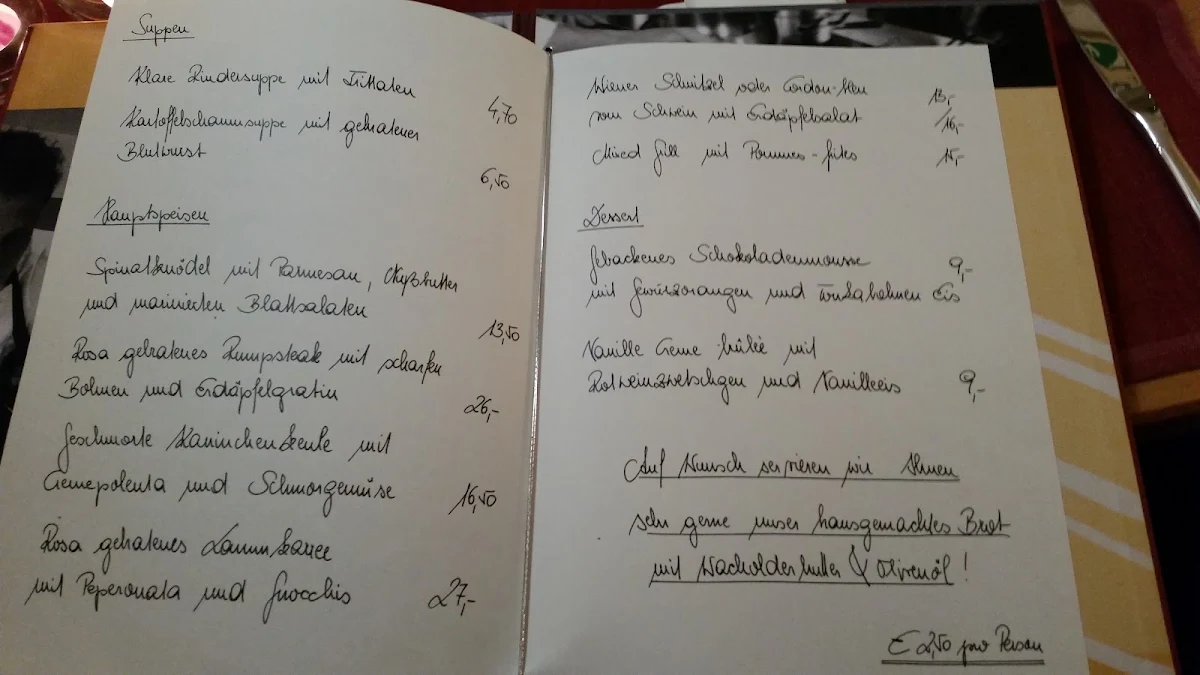 Suppen
Klare Rindersuppe mit Frittaten
4,70
Kartoffelschaumsuppe mit gebratener
Blutwurst
6,50
Hauptspeisen
Spinatknödel mit Parmesan, Nußbutter
und marinierten Blattsalaten
13,50
Rosa gebratenes Rumpsteak mit scharfen
Bohnen und Erdäpfelgratin
26,-
Geschmorte Kaninchenkeule mit
Cremepolenta und Schmorgemüse
16,50
Rosa gebratenes Lammkaree
mit Peperonata und Gnocchis
27,-
Wiener Schnitzel oder Cordon-bleu
13,-
vom Schwein mit Erdäpfelsalat
/16,-
Mixed Grill mit Pommes-frites
15,-
Dessert
Gebackenes Schokoladenmousse
9,-
mit Gewürzorangen und Tonkabohnen Eis
Vanille Creme brûleé mit
Rotweinzwetschgen und Vanilleeis
9,-
Auf Wunsch servieren wir Ihnen
sehr gerne unser hausgemachtes Brot
mit Wacholderbutter & Olivenöl!
€ 2,50 pro Person